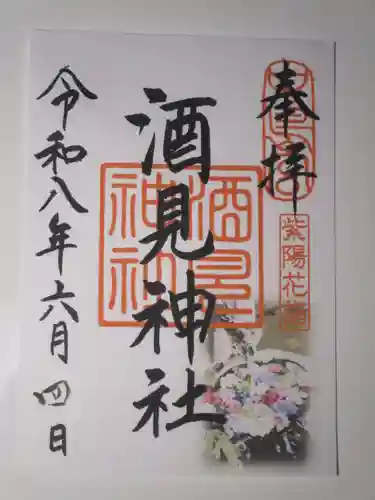 奉拝
紫陽花
酒見神社
酒見神社
令和八年六月四日